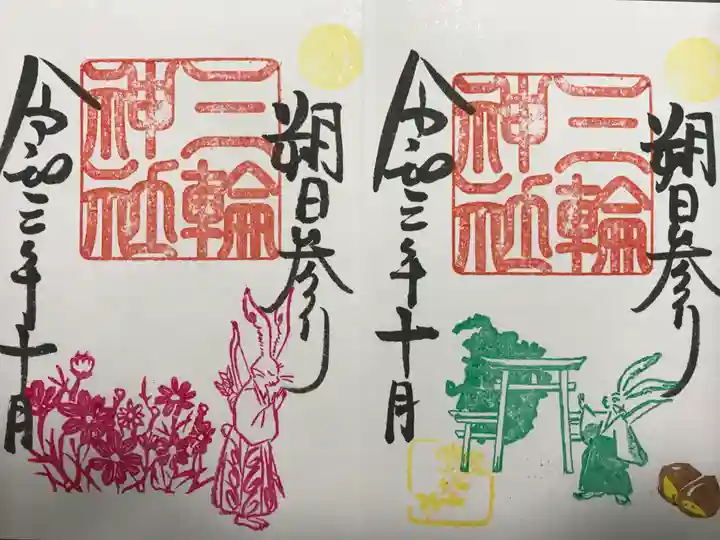 朔日参り
三輪
神社
令和三年十月
朔日参り
三輪
神社
令和三年十月